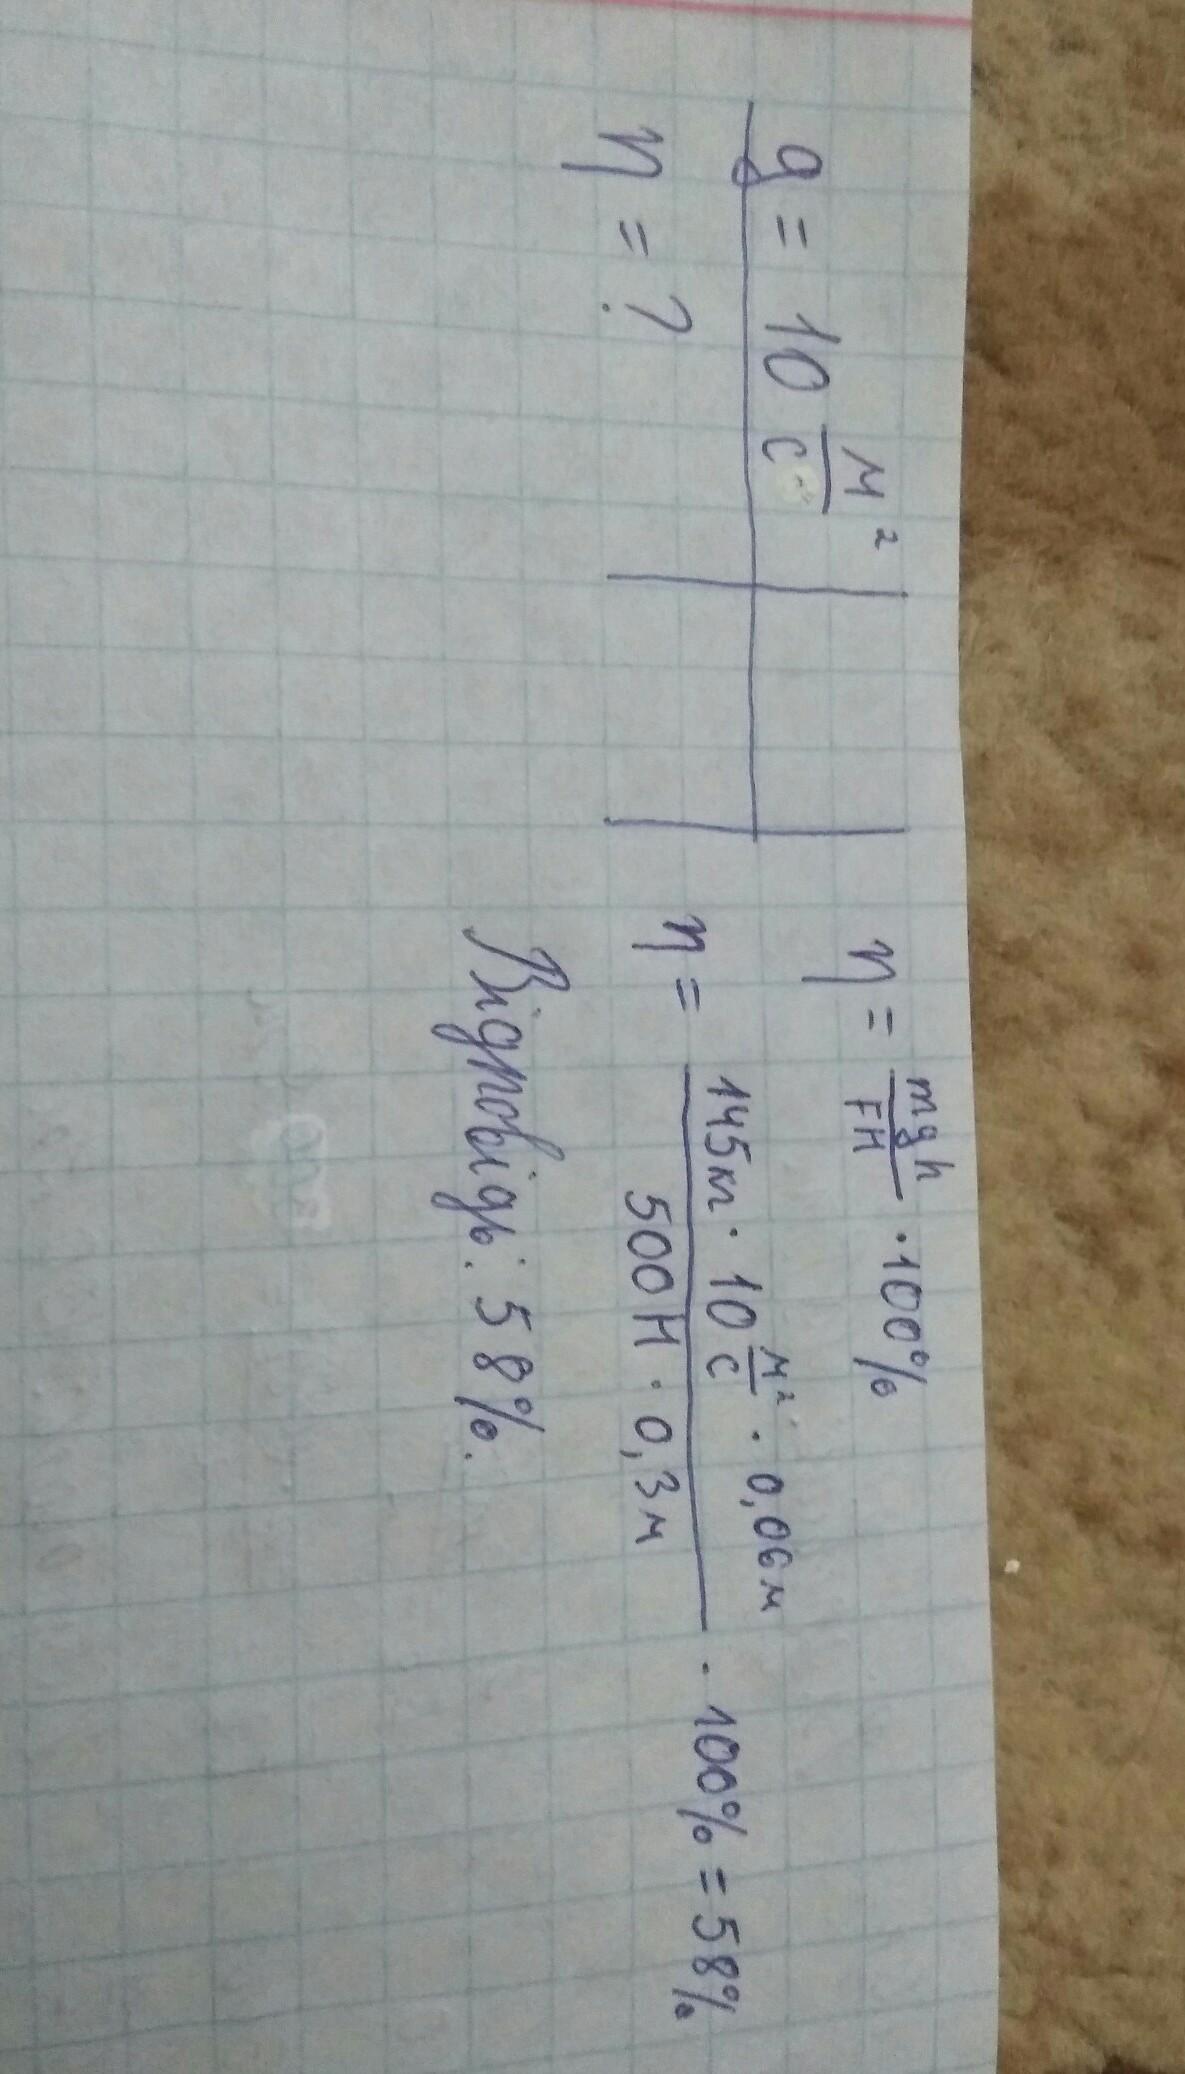 g = 10 м²/с
η = ?
η = mgh/FH · 100%
η = 145кг · 10 м²/с · 0,06м / 500Н · 0,3м · 100% = 58%
Відповідь: 58%.